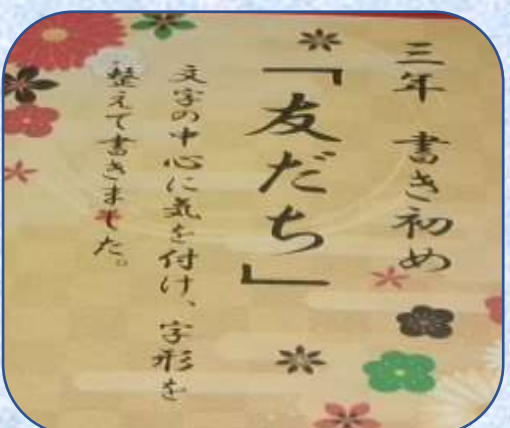 三年 書き初め
「友だち」
文字の中心に気を付け、字形を
整えて書きました。